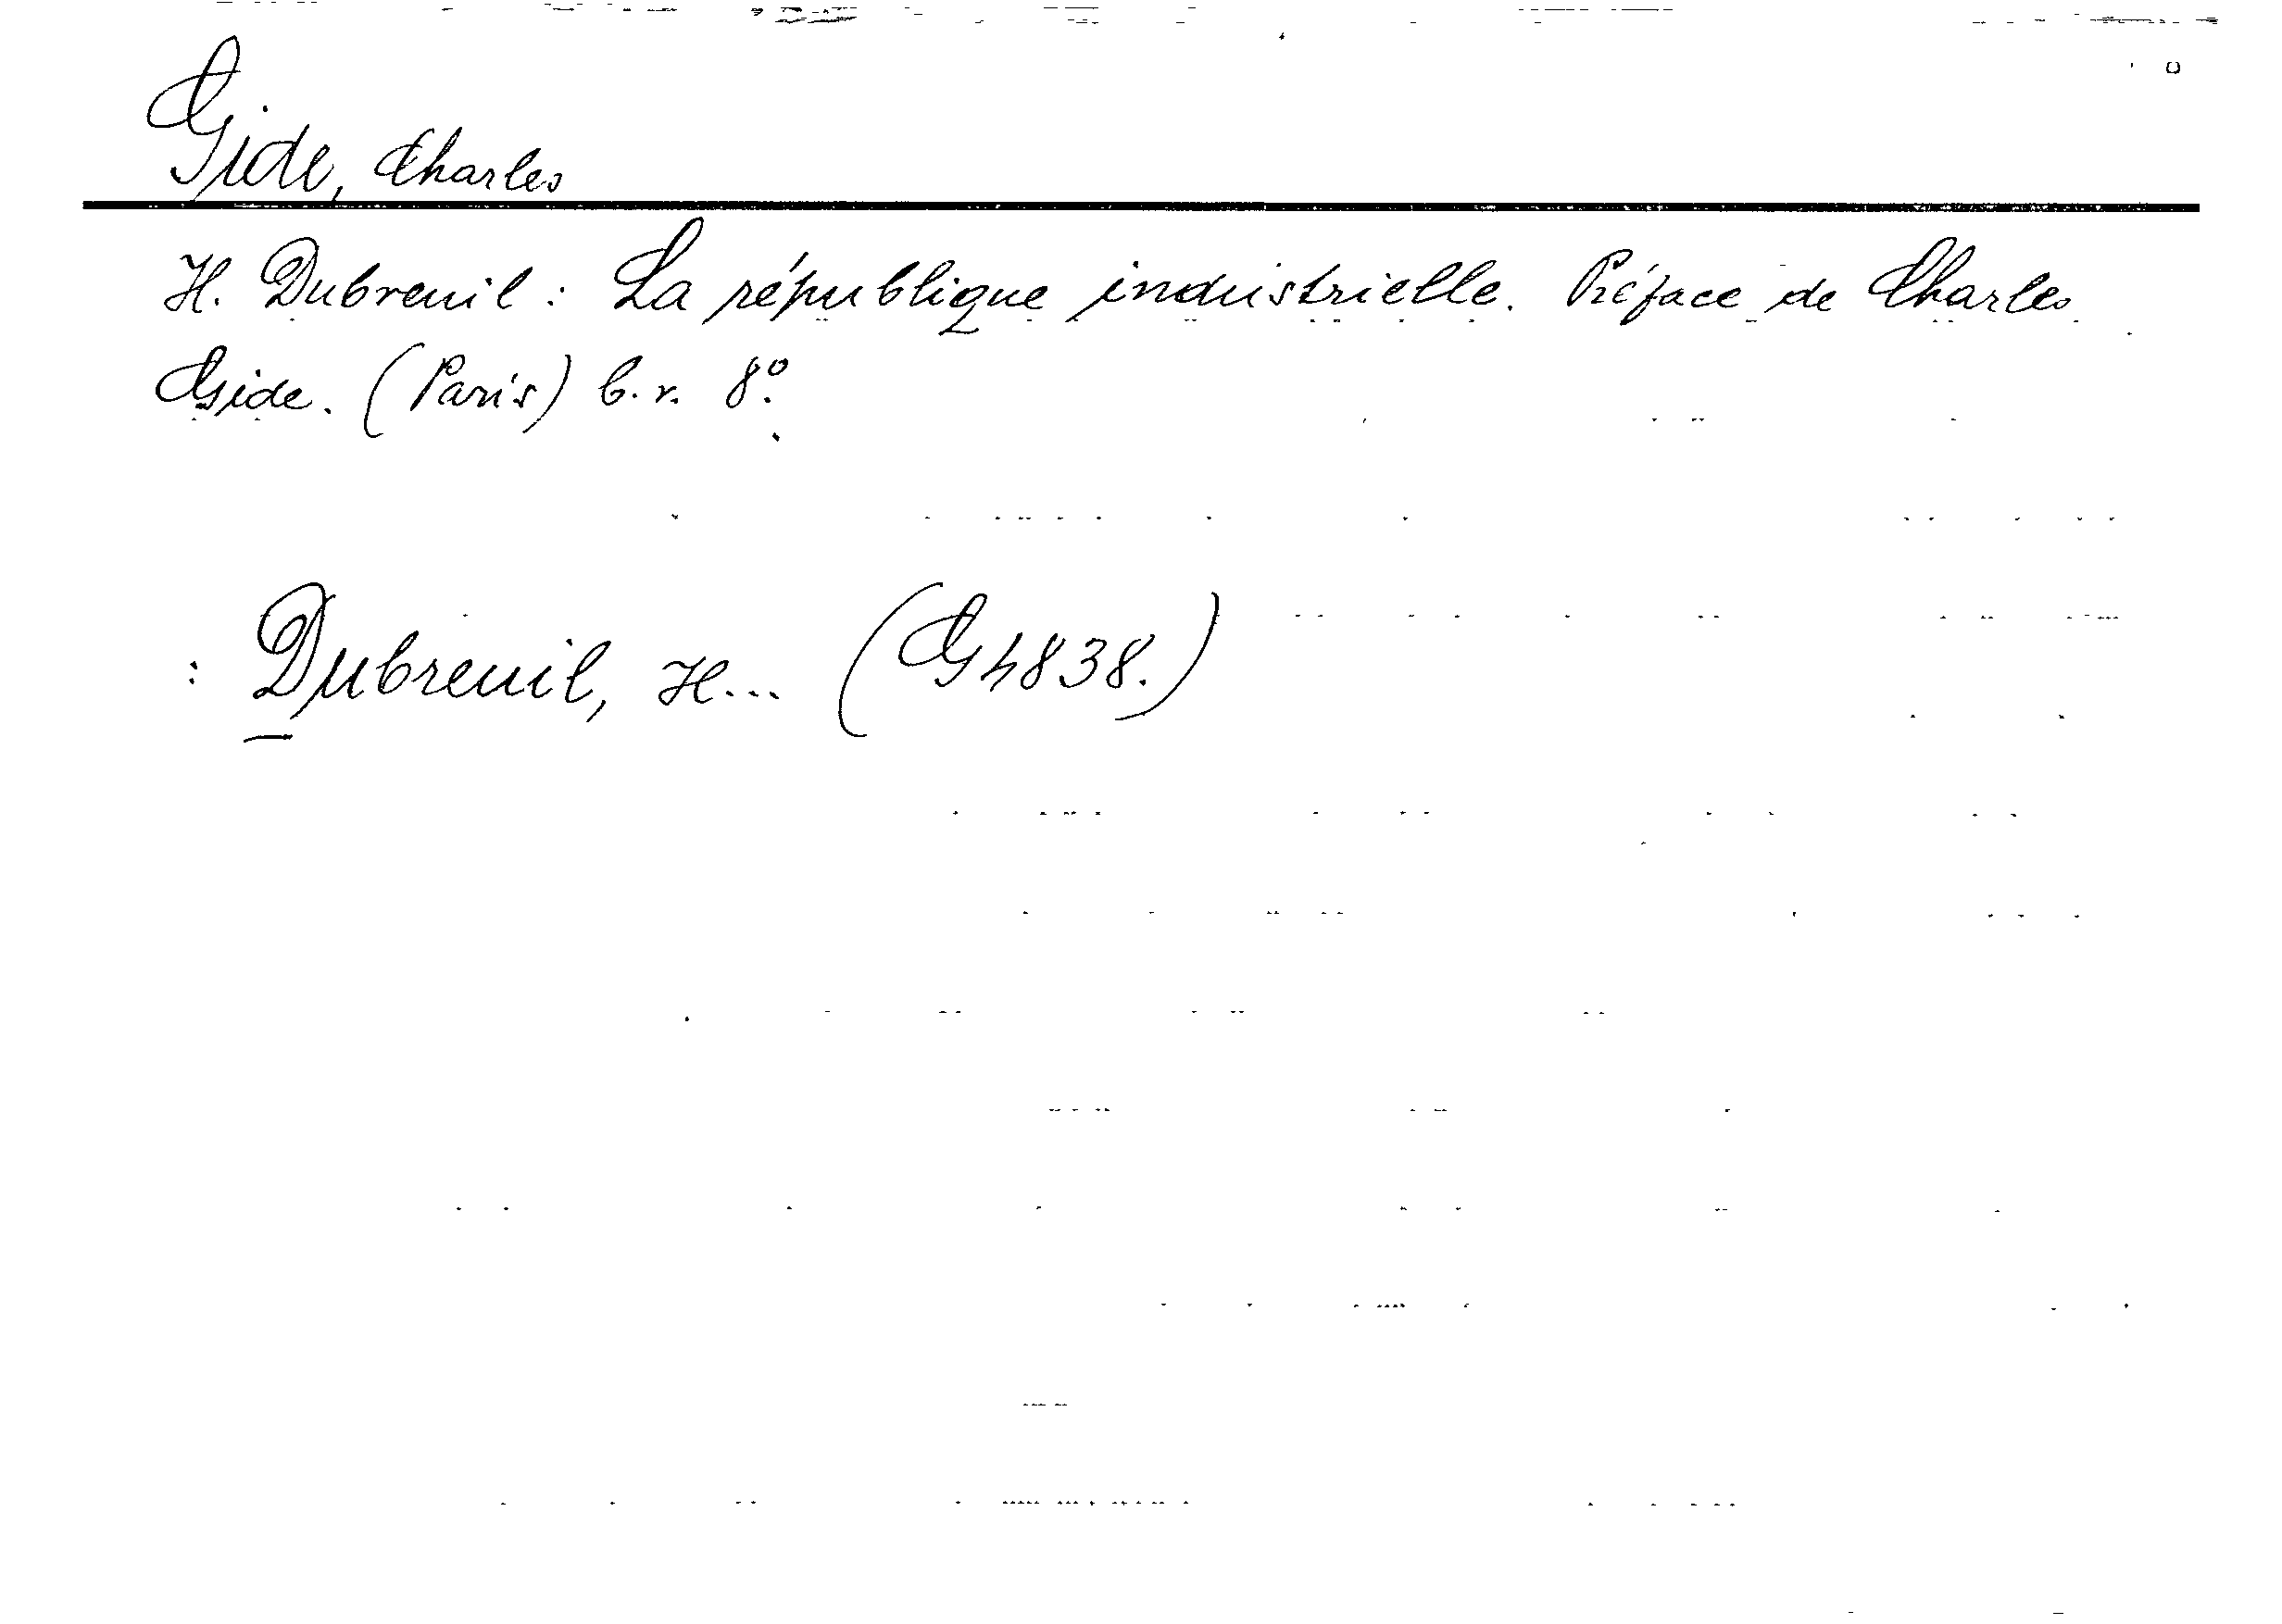 Gide, Charles
H. Dubreuil: La république industrielle. Préface de Charles
Gide. (Paris) b. r. 8º.
: Dubreuil, H... (G4838.)